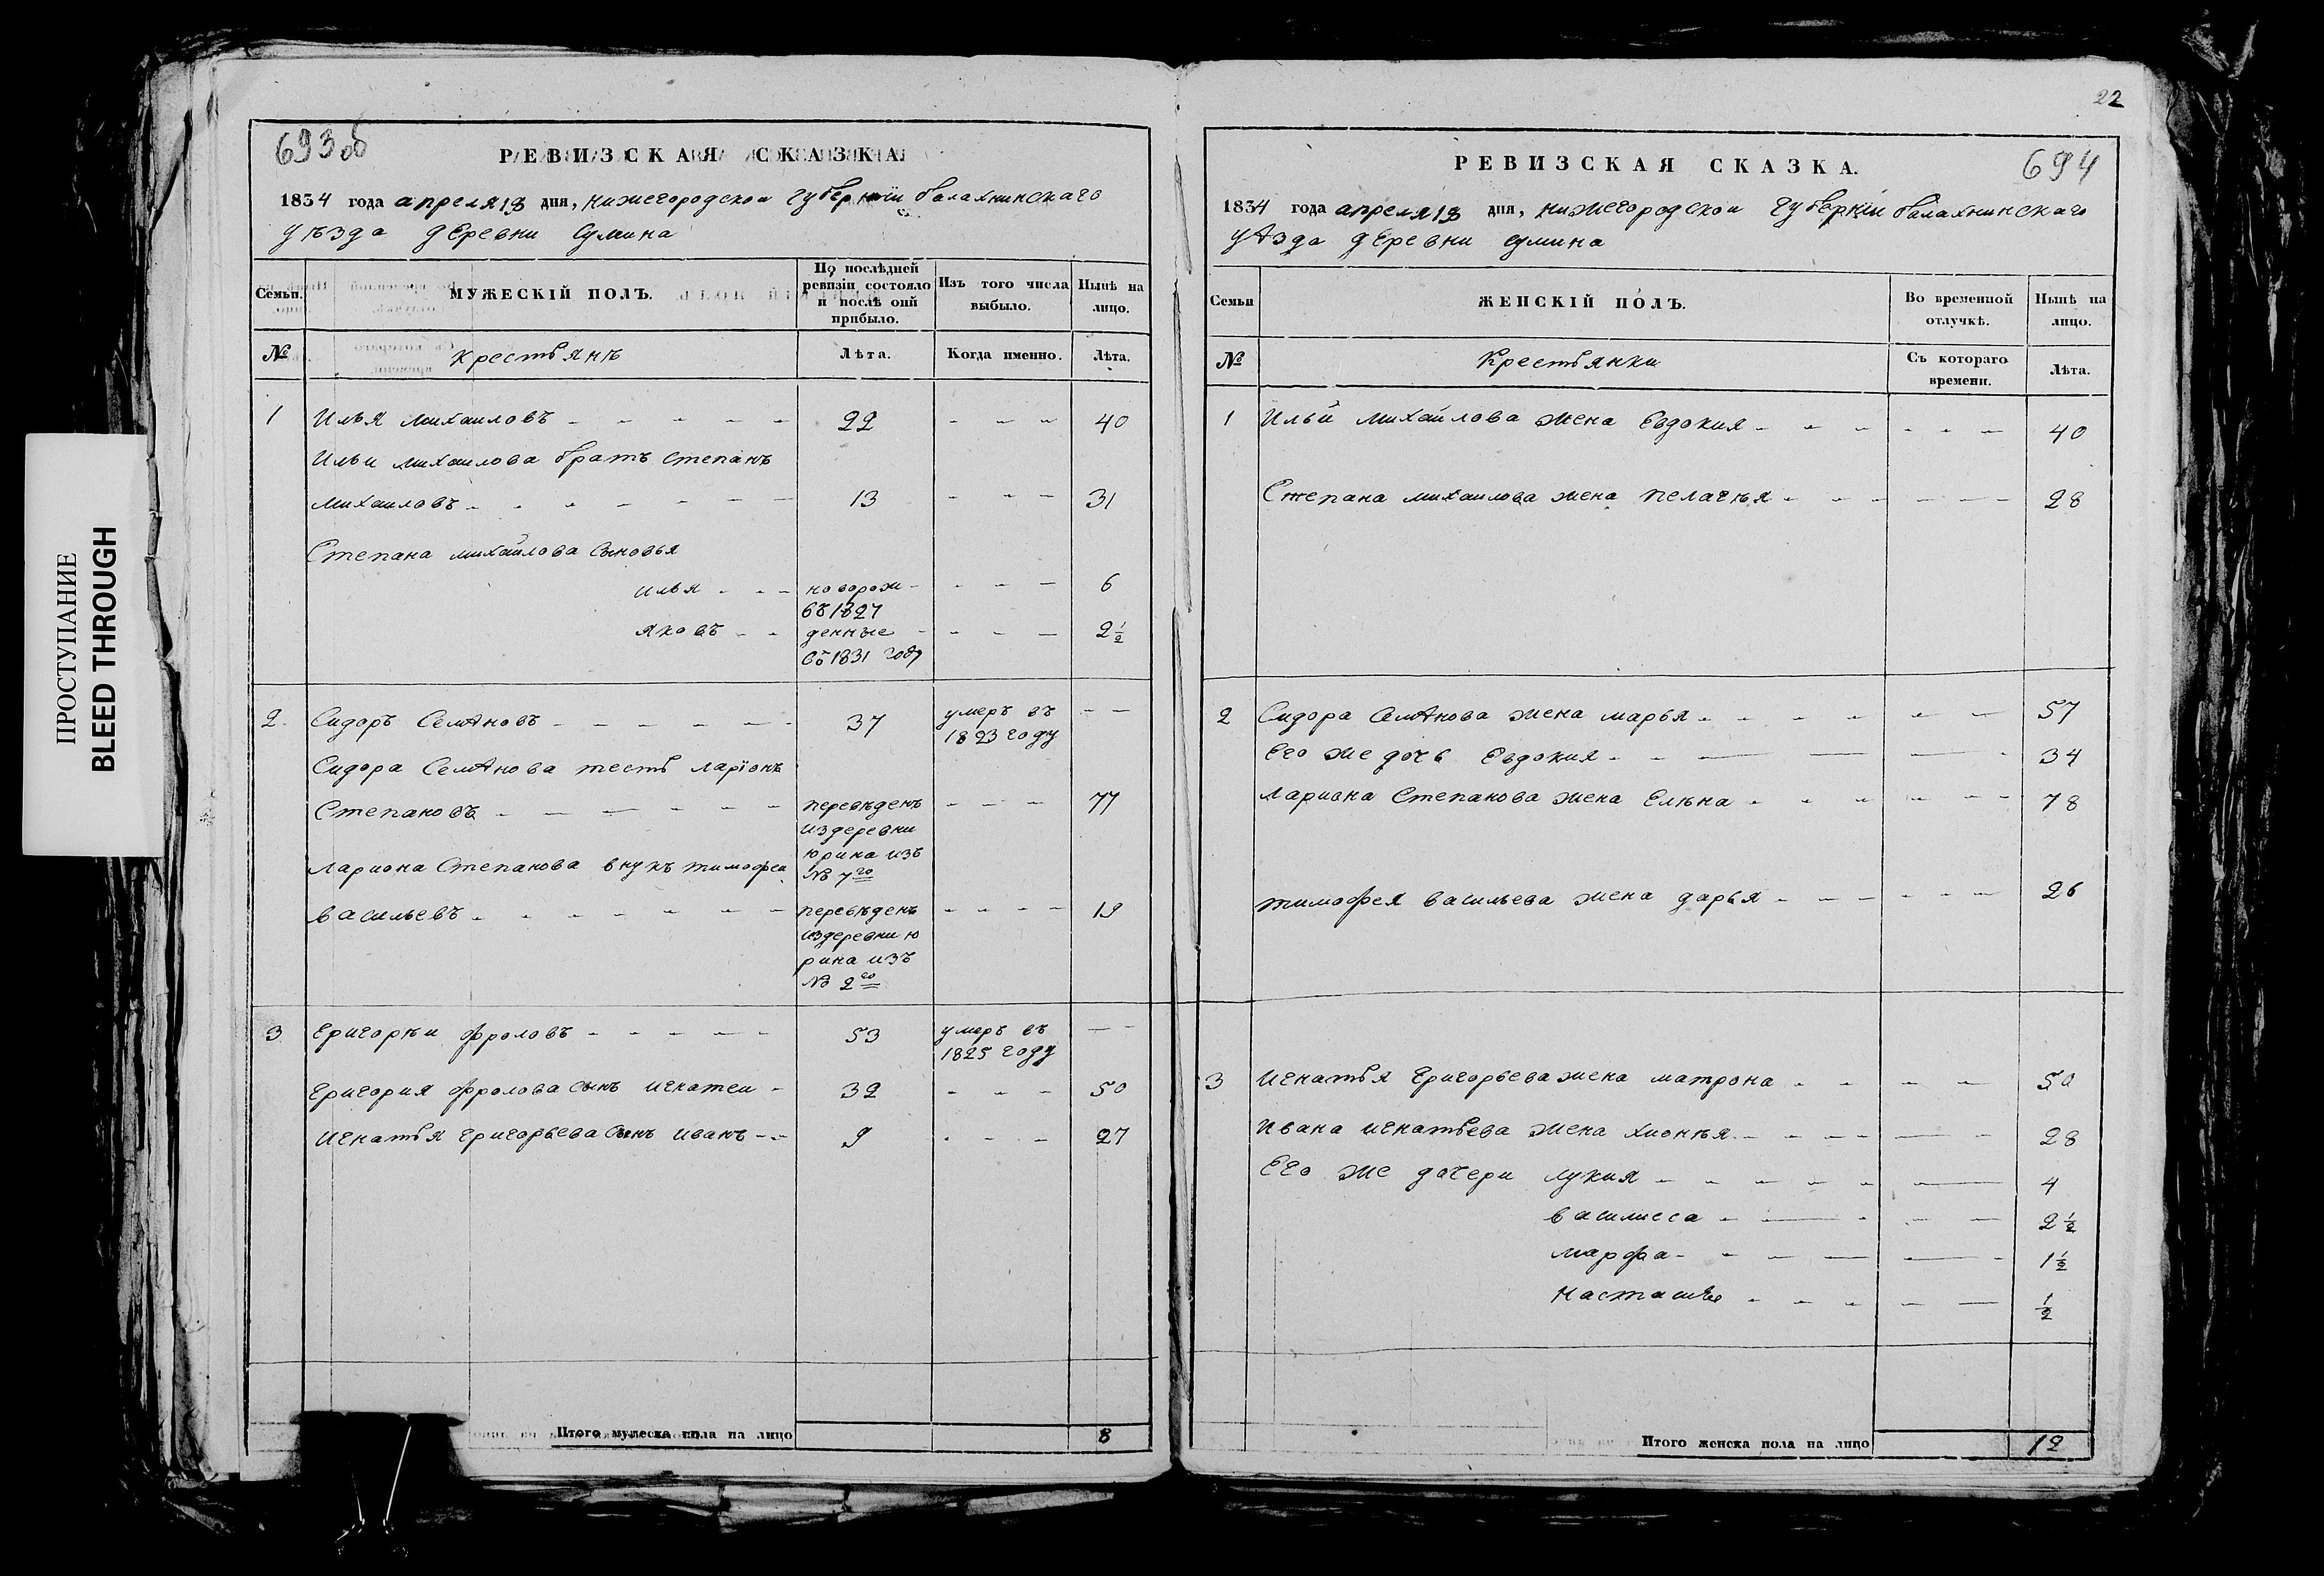 ПРОСТУПАНИЕ
BLEED THROUGH
693 об
РЕВИЗСКАЯ СКАЗКА.
1834 года апреля 13 дня, нижегородскои губерніи балахнинскаго
уѣзда деревни Сумина
Семьи.
МУЖЕСКІЙ ПОЛЪ.
По послѣдней ревизіи состояло и послѣ оий прибыло.
Изъ того числа выбыло.
Нынѣ на лицо.
№
крестьянѣ
Лѣта.
Когда именно.
Лѣта.
1 Илья михаиловъ 22 40
Ильи михаилова братъ степанъ
михаиловъ 13 31
Степана михайлова сыновья
илья новорож- 6
въ 1827
яковъ денные 2 1/2
въ 1831 году
2 Сидоръ Семѣновъ 37 умеръ въ
1823 году
Сидора Семѣнова тесть ларіонъ
Степановъ перевѣденъ 77
издеревни
юрина изъ
№ 7го
лариона Степанова внукъ тимофеи
васильевъ перевѣденъ 19
издеревни ю
рина изъ
№ 2го
3 григорѣи фроловъ 53 умеръ въ
1825 году
григория фролова сынъ игнатеи 32 50
игнатья григорьева сынъ иванъ 9 27
Итого мужеска пола на лицо 8
22
694
РЕВИЗСКАЯ СКАЗКА.
1834 года апреля 13 дня, нижегородскои губерніи балахнинскаго
уѣзда деревни сумина
Семьи
ЖЕНСКІЙ ПОЛЪ.
Во временной отлучкѣ.
Нынѣ на лицо.
№
Крестьянки
Съ котораго времени.
Лѣта.
1 Ильи михайлова жена Евдокия 40
Степана михаилова жена пелагѣя 28
2 Сидора Семѣнова жена марья 57
Его же дочь Евдокия 34
лариона Степанова жена Елѣна 78
тимофея васильева жена дарья 26
3 игнатья григорьева жена матрона 50
ивана игнатьева жена хионѣя 28
Его же дочери лукия 4
василисса 2 1/2
марфа 1 1/2
настасья 1/2
Итого женска пола на лицо 12